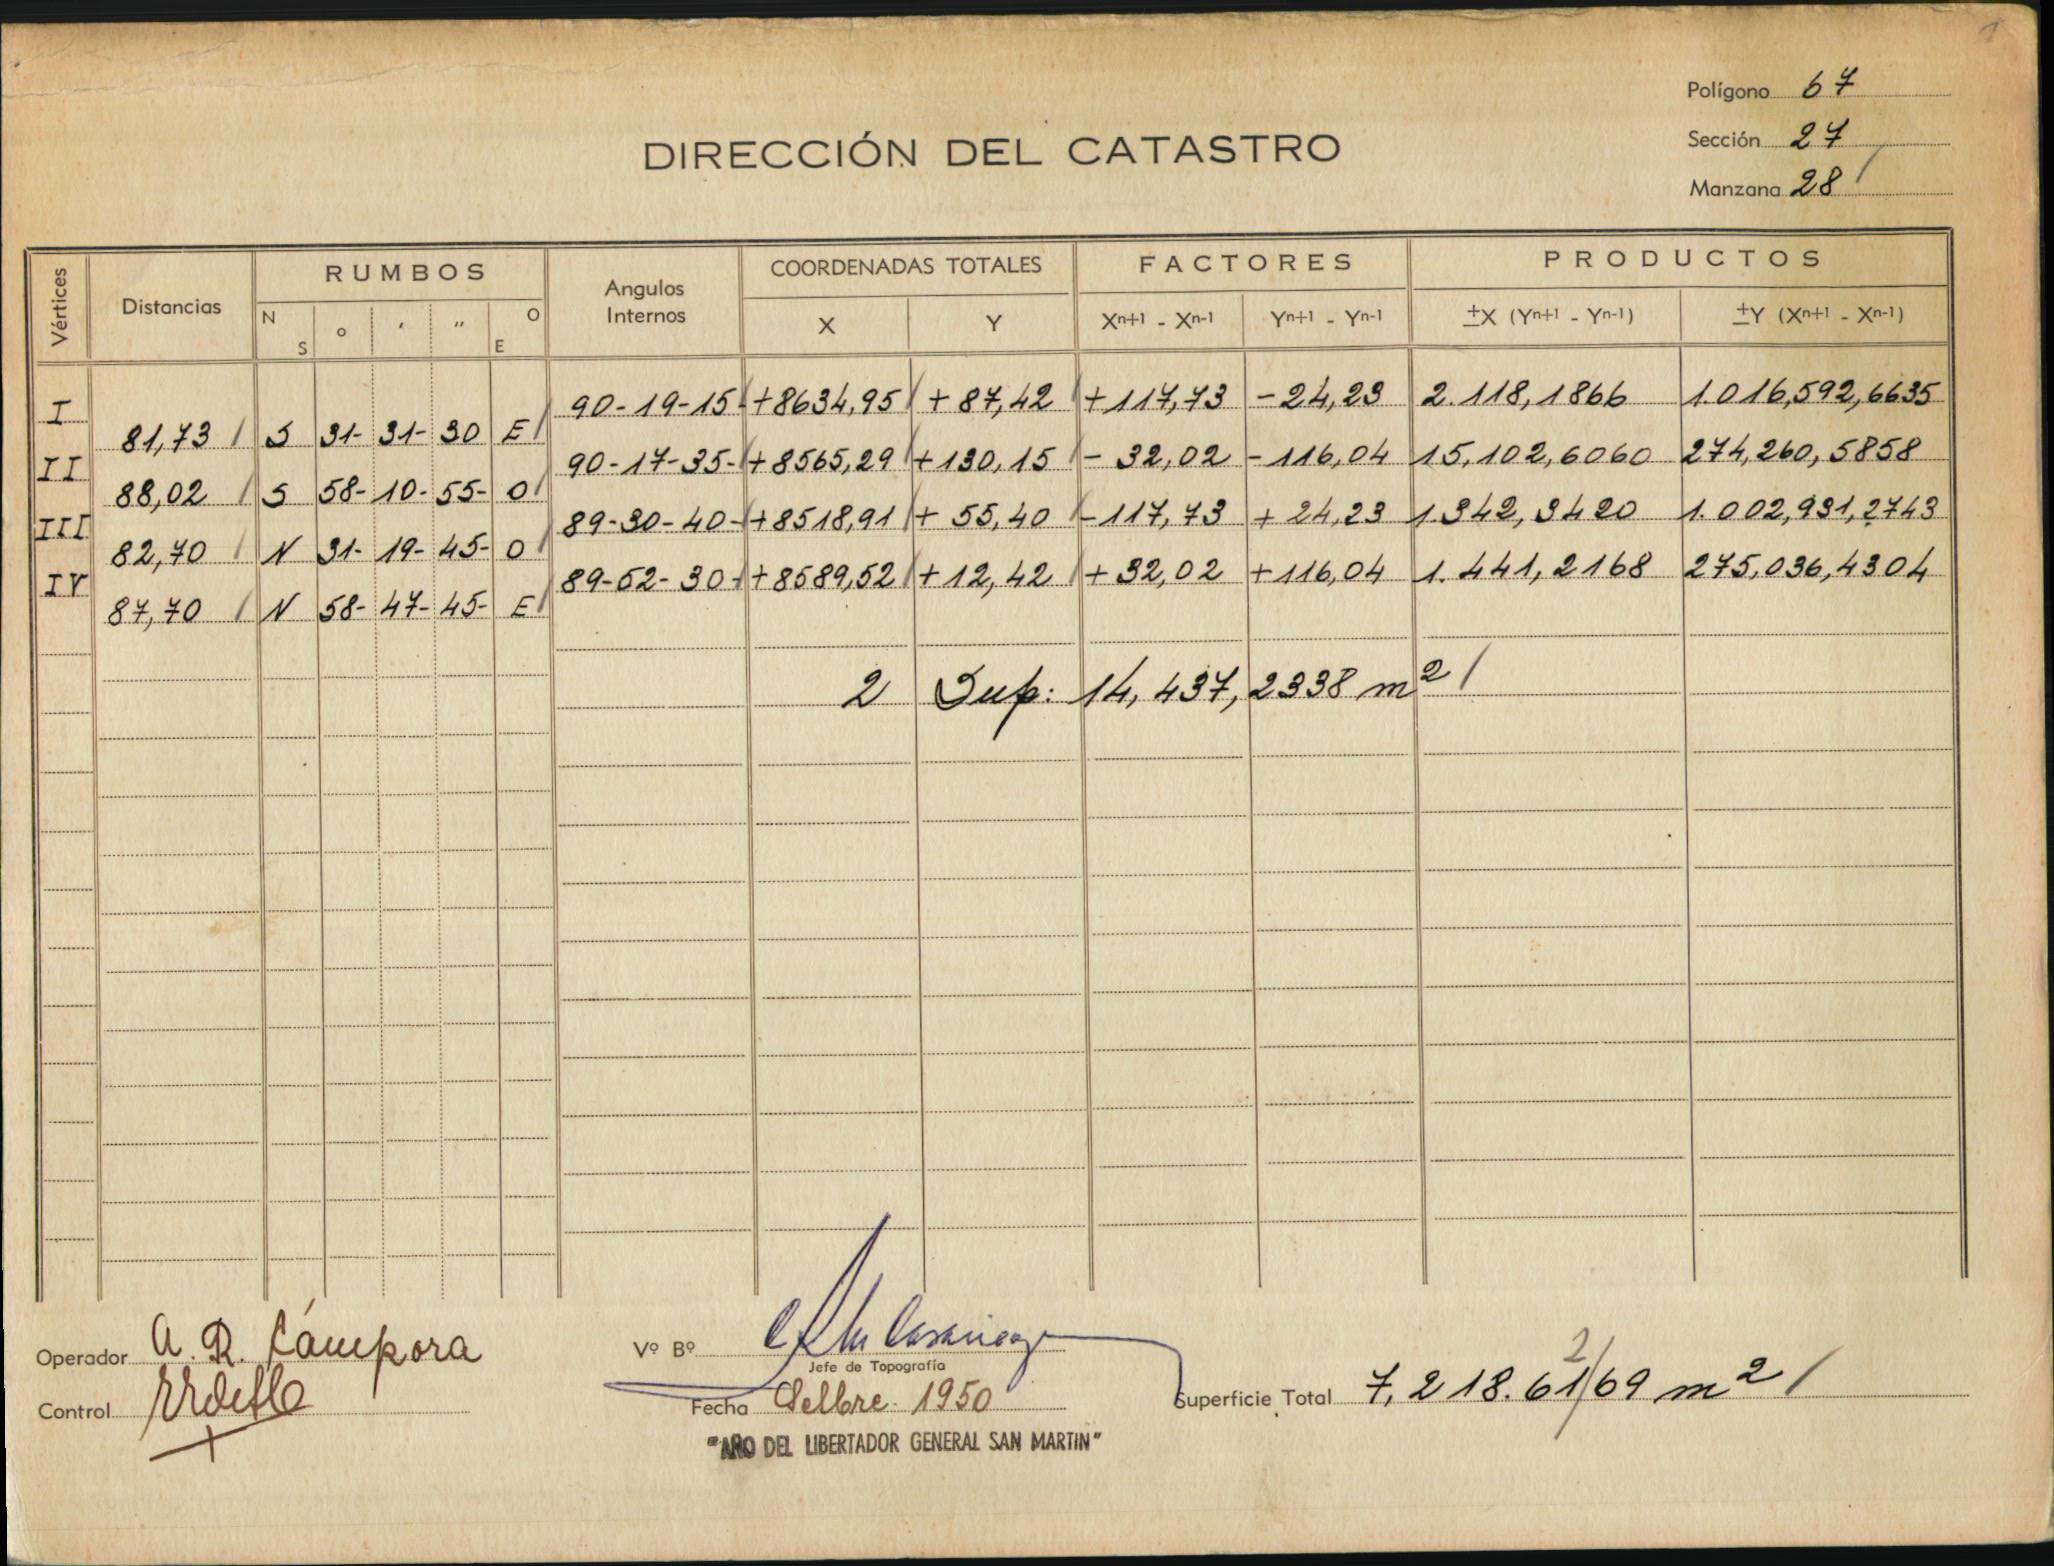 Polígono 67
DIRECCIÓN DEL CATASTRO
Sección 27
Manzana 28 /
Vértices Distancias RUMBOS Angulos Internos COORDENADAS TOTALES FACTORES PRODUCTOS
N S ° ' " O E X Y Xn+1 - Xn-1 Yn+1 - Yn-1 ±X (Yn+1 - Yn-1) ±Y (Xn+1 - Xn-1)
I 90-19-15- +8634,95 / + 87,42 / +117,73 -24,23 2.118,1866 1.016,592,6635
81,73 / S 31- 31- 30 E /
II 90-17-35- +8565,29 / +130,15 / - 32,02 -116,04 15,102,6060 274,260,5858
88,02 / S 58- 10- 55- O /
III 89-30-40- +8518,91 / + 55,40 / -117,73 + 24,23 1.342,3420 1.002,931,2743
82,70 / N 31- 19- 45- O /
IV 89-52-30- +8589,52 / +12,42 / +32,02 +116,04 1.441,2168 275,036,4304
87,70 / N 58- 47- 45- E /
2 Sup: 14,437,2338 m2 /
Operador A. R. Cámpora
Vº Bº
Jefe de Topografía
Control
Fecha 1950
Superficie Total 7,218.61/69 m2 /
2
"AÑO DEL LIBERTADOR GENERAL SAN MARTIN"